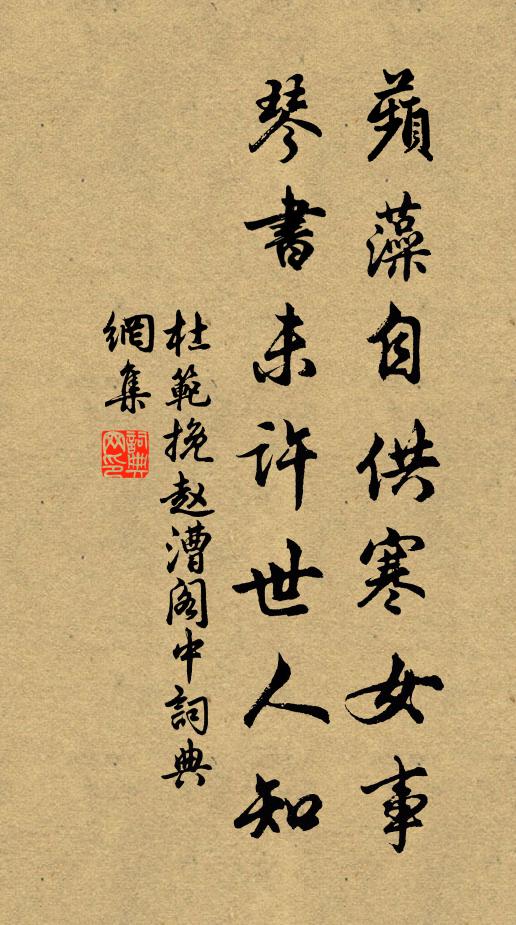 蘋藻自供寒女事
琴書未許世人知
杜範挽赵漕阁中詞典
網集
詞典网印